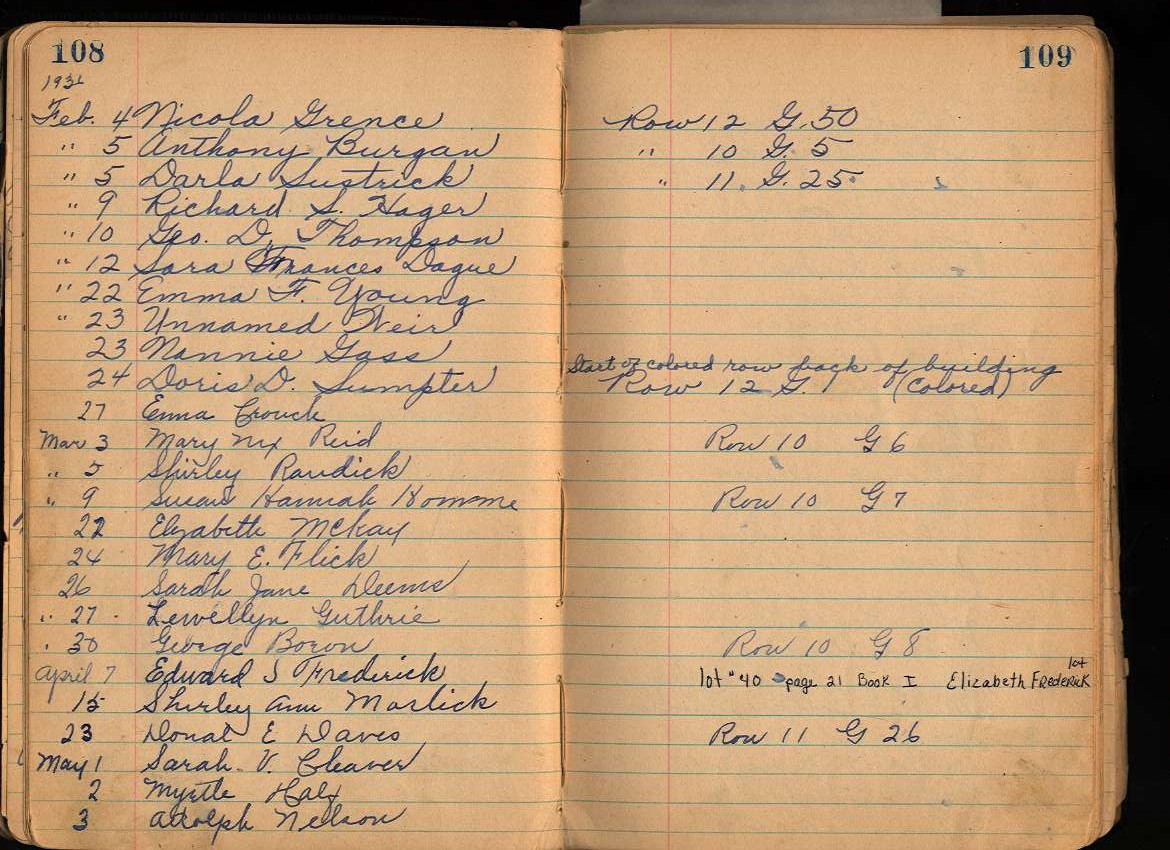 108
109
1931
Feb. 4 Nicola Grence Row 12 G. 50
" 5 Anthony Burgan " 10 G. 5
" 5 Darla Sustrick " 11. G. 25
" 9 Richard S. Hager
" 10 Geo. D. Thompson
" 12 Sara Frances Dague
" 22 Emma F. Young
" 23 Unnamed Weir
23 Nannie Gass
Start of colored row back of building
24 Doris D. Sumpter Row 12 G. 1 (Colored)
27 Emma Crouch
Mar 3 Mary Reid Row 10 G 6
" 5 Shirley Randick
" 9 Susan Hannah Homme Row 10 G 7
22 Elizabeth McKay
24 Mary E. Flick
26 Sarah Jane Deems
" 27 Lewellyn Guthrie
" 30 George Boron Row 10 G 8
April 7 Edward S Frederick lot #40 page 21 Book I Elizabeth Frederick lot
15 Shirley Ann Marlick
23 Donal E Davis Row 11 G 26
May 1 Sarah V. Cleaver
2 Myrtle Half
3 Adolph Nelson